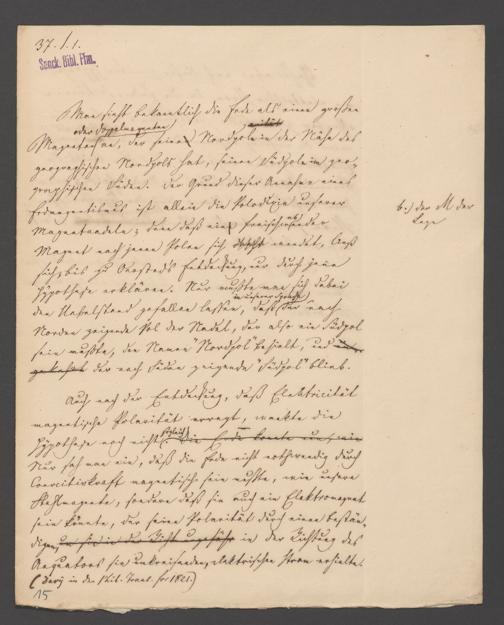 37. 1.1.
Senck. Bibl. Ffm.
Man sieht bekanntlich die Erde als einen großen
oder Doppelmagneten
Magneten an, der seinen Nordpol in der Nähe des
geographischen Nordpols hat, seinen Südpol im geo-
graphischen Süden. Der Grund dieser Annahme eines
Erdmagnetismus ist allein die
Magnetnadeln; denn daß ein freischwebender
Magnet nach jenen Polen sich wendet, ließ
sich, bis zu Oersteds Entdeckung, nur durch jene
Hypothese erklären. Nur mußte man sich dabei
den Uebelstand gefallen lassen, daß der nach
Norden zeigende Pol der Nadel, der also ein Südpol
sein mußte, den Namen "Nordpol" behielt, und
der nach Süden zeigende "Südpol" blieb.
Auch nach der Entdeckung, daß Elektricität
magnetische Polarität erregt, wankte die
Hypothese noch nicht. Die Erde konnte nun, wie
Nur sah man ein, daß die Erde nicht nothwendig durch
Coercitivkraft magnetisch sein müsse, wie unsere
Stahlmagnete, sondern daß sie auch ein Elektromagnet
sein könnte, der seine Polarität durch einen bestän-
digen, in der Richtung des
Aequators sie umkreisenden, elektrischen Strom erhielte.
in den Phil. Trans. for 1821.)
15
der M der
Lage